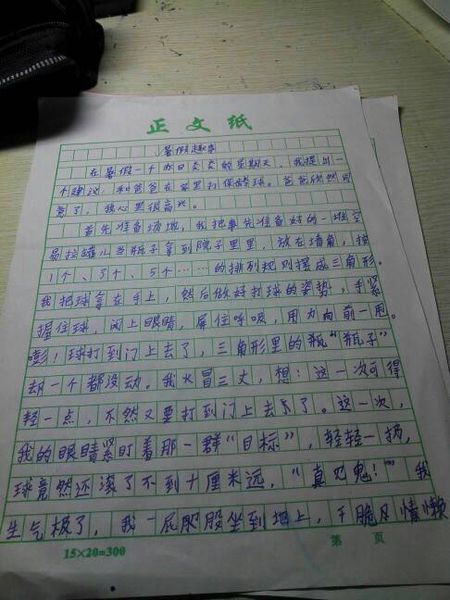 正文纸
暑假趣事
在暑假一个烈日炎炎的星期天，我提出一
个建议：和爸爸在家里打保龄球。爸爸欣然同
意了，我心里很高兴。
首先准备场地，我把事先准备好的一堆空
易拉罐儿当瓶子拿到院子里里，放在墙角，按
1个、3个、5个……的排列规则摆成三角形。
我把球拿在手上，然后做好打球的姿势，手紧
握住球，闭上眼睛，屏住呼吸，用力向前一甩。
嘭！球打到门上去了，三角形里的瓶“瓶子”
却一个都没动。我火冒三丈，想：这一次可得
轻一点，不然又要打到门上去了。这一次，
我的眼睛紧盯着那一群“目标”，轻轻一扔，
球竟然还滚了不到十厘米远，“真见鬼！”我
生气极了，我一屁股坐到地上，干脆
15×20=300
第 页